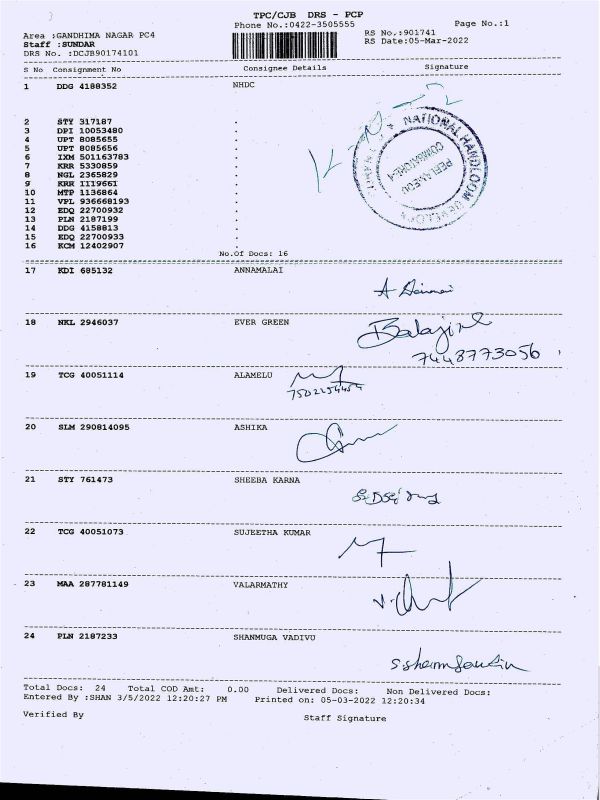 TPC/CJB DRS - PCP
Phone No.:0422-3505555
Page No.:1
Area :GANDHIMA NAGAR PC4
RS No.:901741
Staff :SUNDAR
RS Date:05-Mar-2022
DRS No. :DCJB90174101
S No Consignment No Consignee Details Signature
1 DDG 4188352 NHDC
2 STY 317187 .
3 DPI 10053480 .
4 UPT 8085655 .
5 UPT 8085656 .
6 IXM 501163783 .
7 KRR 5330859 .
8 NGL 2365829 .
9 KRR 1119661 .
10 MTP 1136864 .
11 VPL 936668193 .
12 EDQ 22700932 .
13 PLN 2187199 .
14 DDG 4158813 .
15 EDQ 22700933 .
16 KCM 12402907 .
NATIONAL HANDLOOM
COIMBATORE-4
No.Of Docs: 16
17 KDI 685132 ANNAMALAI
18 NKL 2946037 EVER GREEN
Balaji
7448773056
19 TCG 40051114 ALAMELU
20 SLM 290814095 ASHIKA
21 STY 761473 SHEEBA KARNA
22 TCG 40051073 SUJEETHA KUMAR
23 MAA 287781149 VALARMATHY
24 PLN 2187233 SHANMUGA VADIVU
Total Docs: 24 Total COD Amt: 0.00 Delivered Docs: Non Delivered Docs:
Entered By :SHAN 3/5/2022 12:20:27 PM Printed on: 05-03-2022 12:20:34
Verified By Staff Signature